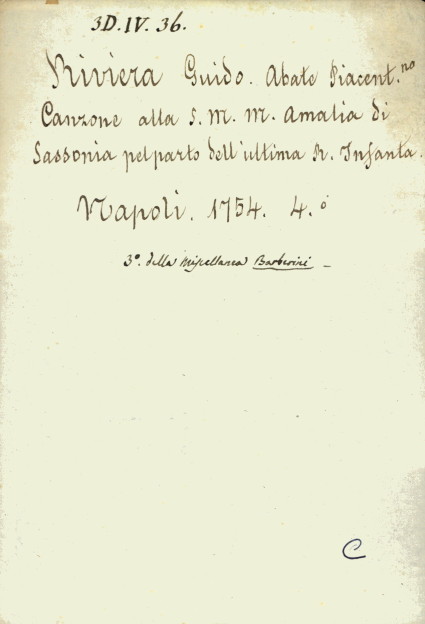 3D. IV. 36.
Riviera Guido. Abate Piacent.no
Canzone alla S. M. M. Amalia di
Sassonia pel parto dell'ultima R. Infanta.
Napoli. 1754. 4.o
3o. della Miscellanea Barberini –
C